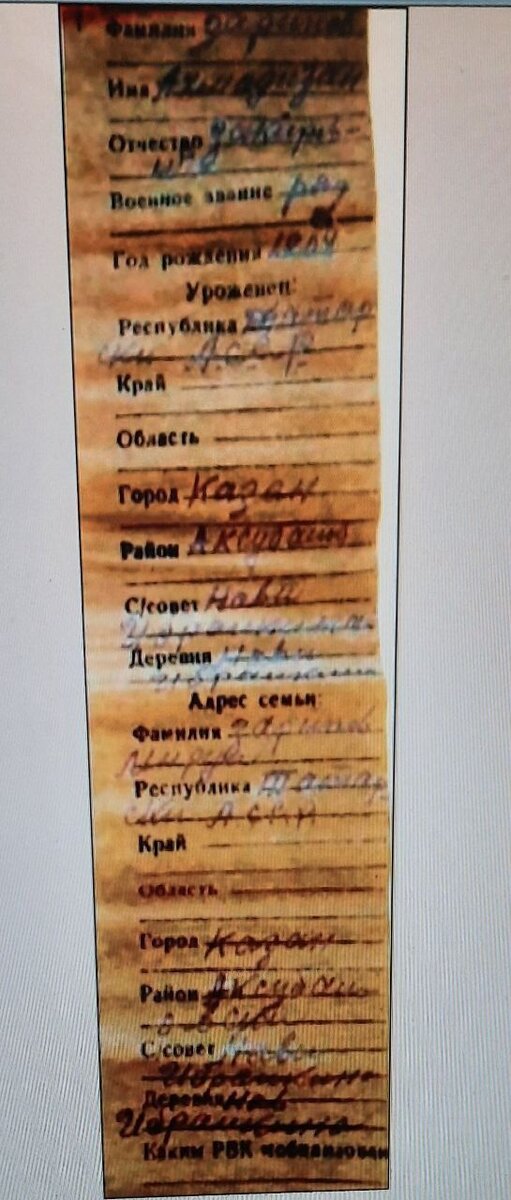 Фамилия Зарипов
Имя Ахмадизан
Отчество Закирв-
ич
Военное звание ряд
Год рождения 1904
Уроженец:
Республика Татар
ски А.С.С.Р
Край
Область
Город Казан
Район Аксубаив
С/совет Нави
Ибрашкина
Деревня Нави
Ибрашкин
Адрес семьи:
Фамилия Зарипов
Республика Татар
ски АССР
Край
Область
Город Казан
Район Аксубаи
С/совет Нави
Ибрашкино
Деревня Нав
Ибрашкино
Каким РВК мобилизован